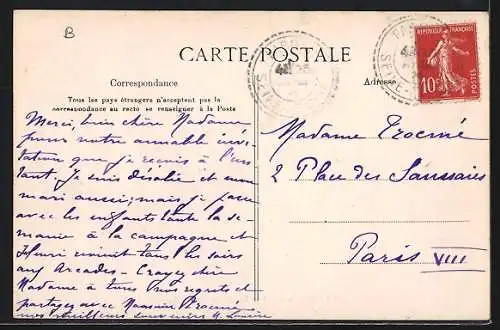 B
CARTE POSTALE
Correspondance
Tous les pays étrangers n'acceptent pas la
correspondance au recto se renseigner à la Poste
Adresse
REPUBLIQUE FRANÇAISE
10
POSTES
Merci, bien chère Madame
pour votre aimable invi-
tation que je reçois à l'ins
tant. Je suis désolée et mon
mari aussi; mais je pars
avec les enfants toute la se-
maine à la campagne et
Henri revient tous les soirs
aux Arcades - Croyez chère
Madame à tous mes regrets et
partagez avec Monsieur
nos meilleurs souvenirs
Madame
2 Place des Saussaies
Paris VIII